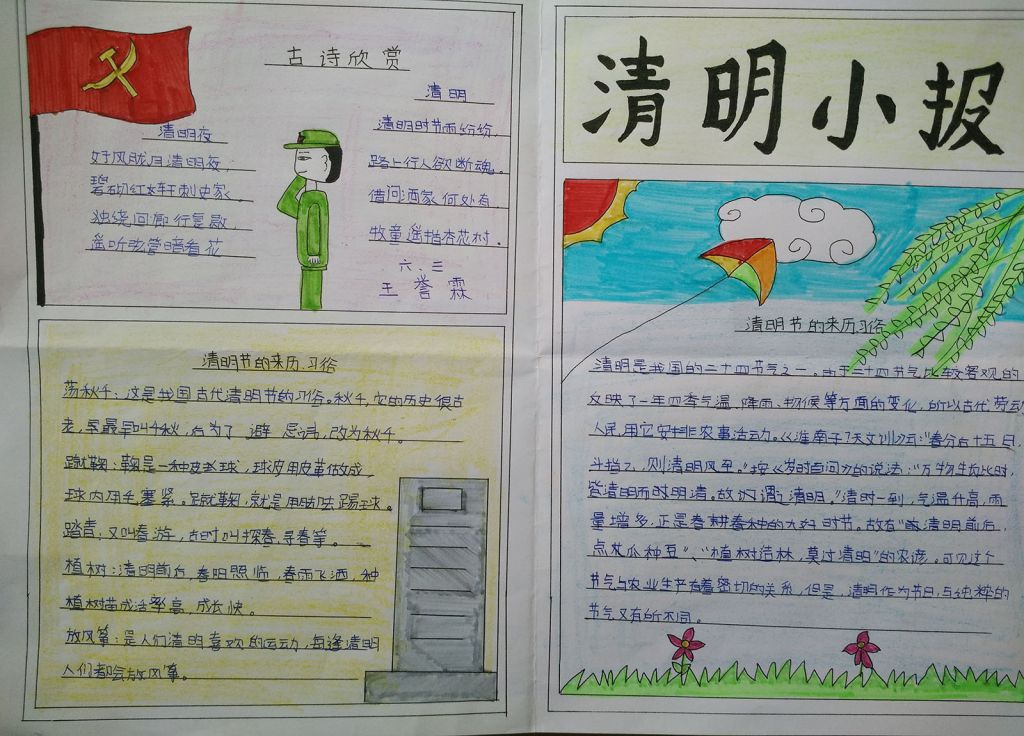 古诗欣赏
清明夜
好风胧月清明夜，
碧砌红轩刺史家。
独绕回廊行复歇，
遥听弦管暗看花
清明
清明时节雨纷纷，
路上行人欲断魂。
借问酒家何处有
牧童遥指杏花村。
六.三
王誉霖
清明节的来历.习俗
荡秋千：这是我国古代清明节的习俗。秋千，它的历史很古
老，早最早叫千秋，后为了 避 忌讳，改为秋千。
蹴鞠：鞠是一种皮球，球皮用皮革做成
球内用毛塞紧。蹴鞠，就是用脚去踢球。
踏青：又叫春游，古时叫探春寻春等。
植树：清明前后，春阳照临，春雨飞洒，种
植树苗成活率高，成长快。
放风筝：是人们清明喜欢的运动，每逢清明
人们都会放风筝。
清明小报
清明节的来历习俗
清明是我国的二十四节气之一。由于二十四节气比较客观的
反映了一年四季气温、降雨、物候等方面的变化，所以古代劳动
人民用它安排农事活动。《淮南子7天文训》云："春分后十五日，
斗指乙，则清明风至。"按《岁时百问》的说法："万物生长此时，
皆清明而时明清。故谓清明。"清时一到，气温升高，雨
量增多，正是春耕春种的大好时节。故有"清明前后，
点苽种豆"、"植树造林，莫过清明"的农谚。可见这个
节气与农业生产有着密切的关系，但是，清明作为节日，与纯粹的
节气又有所不同。